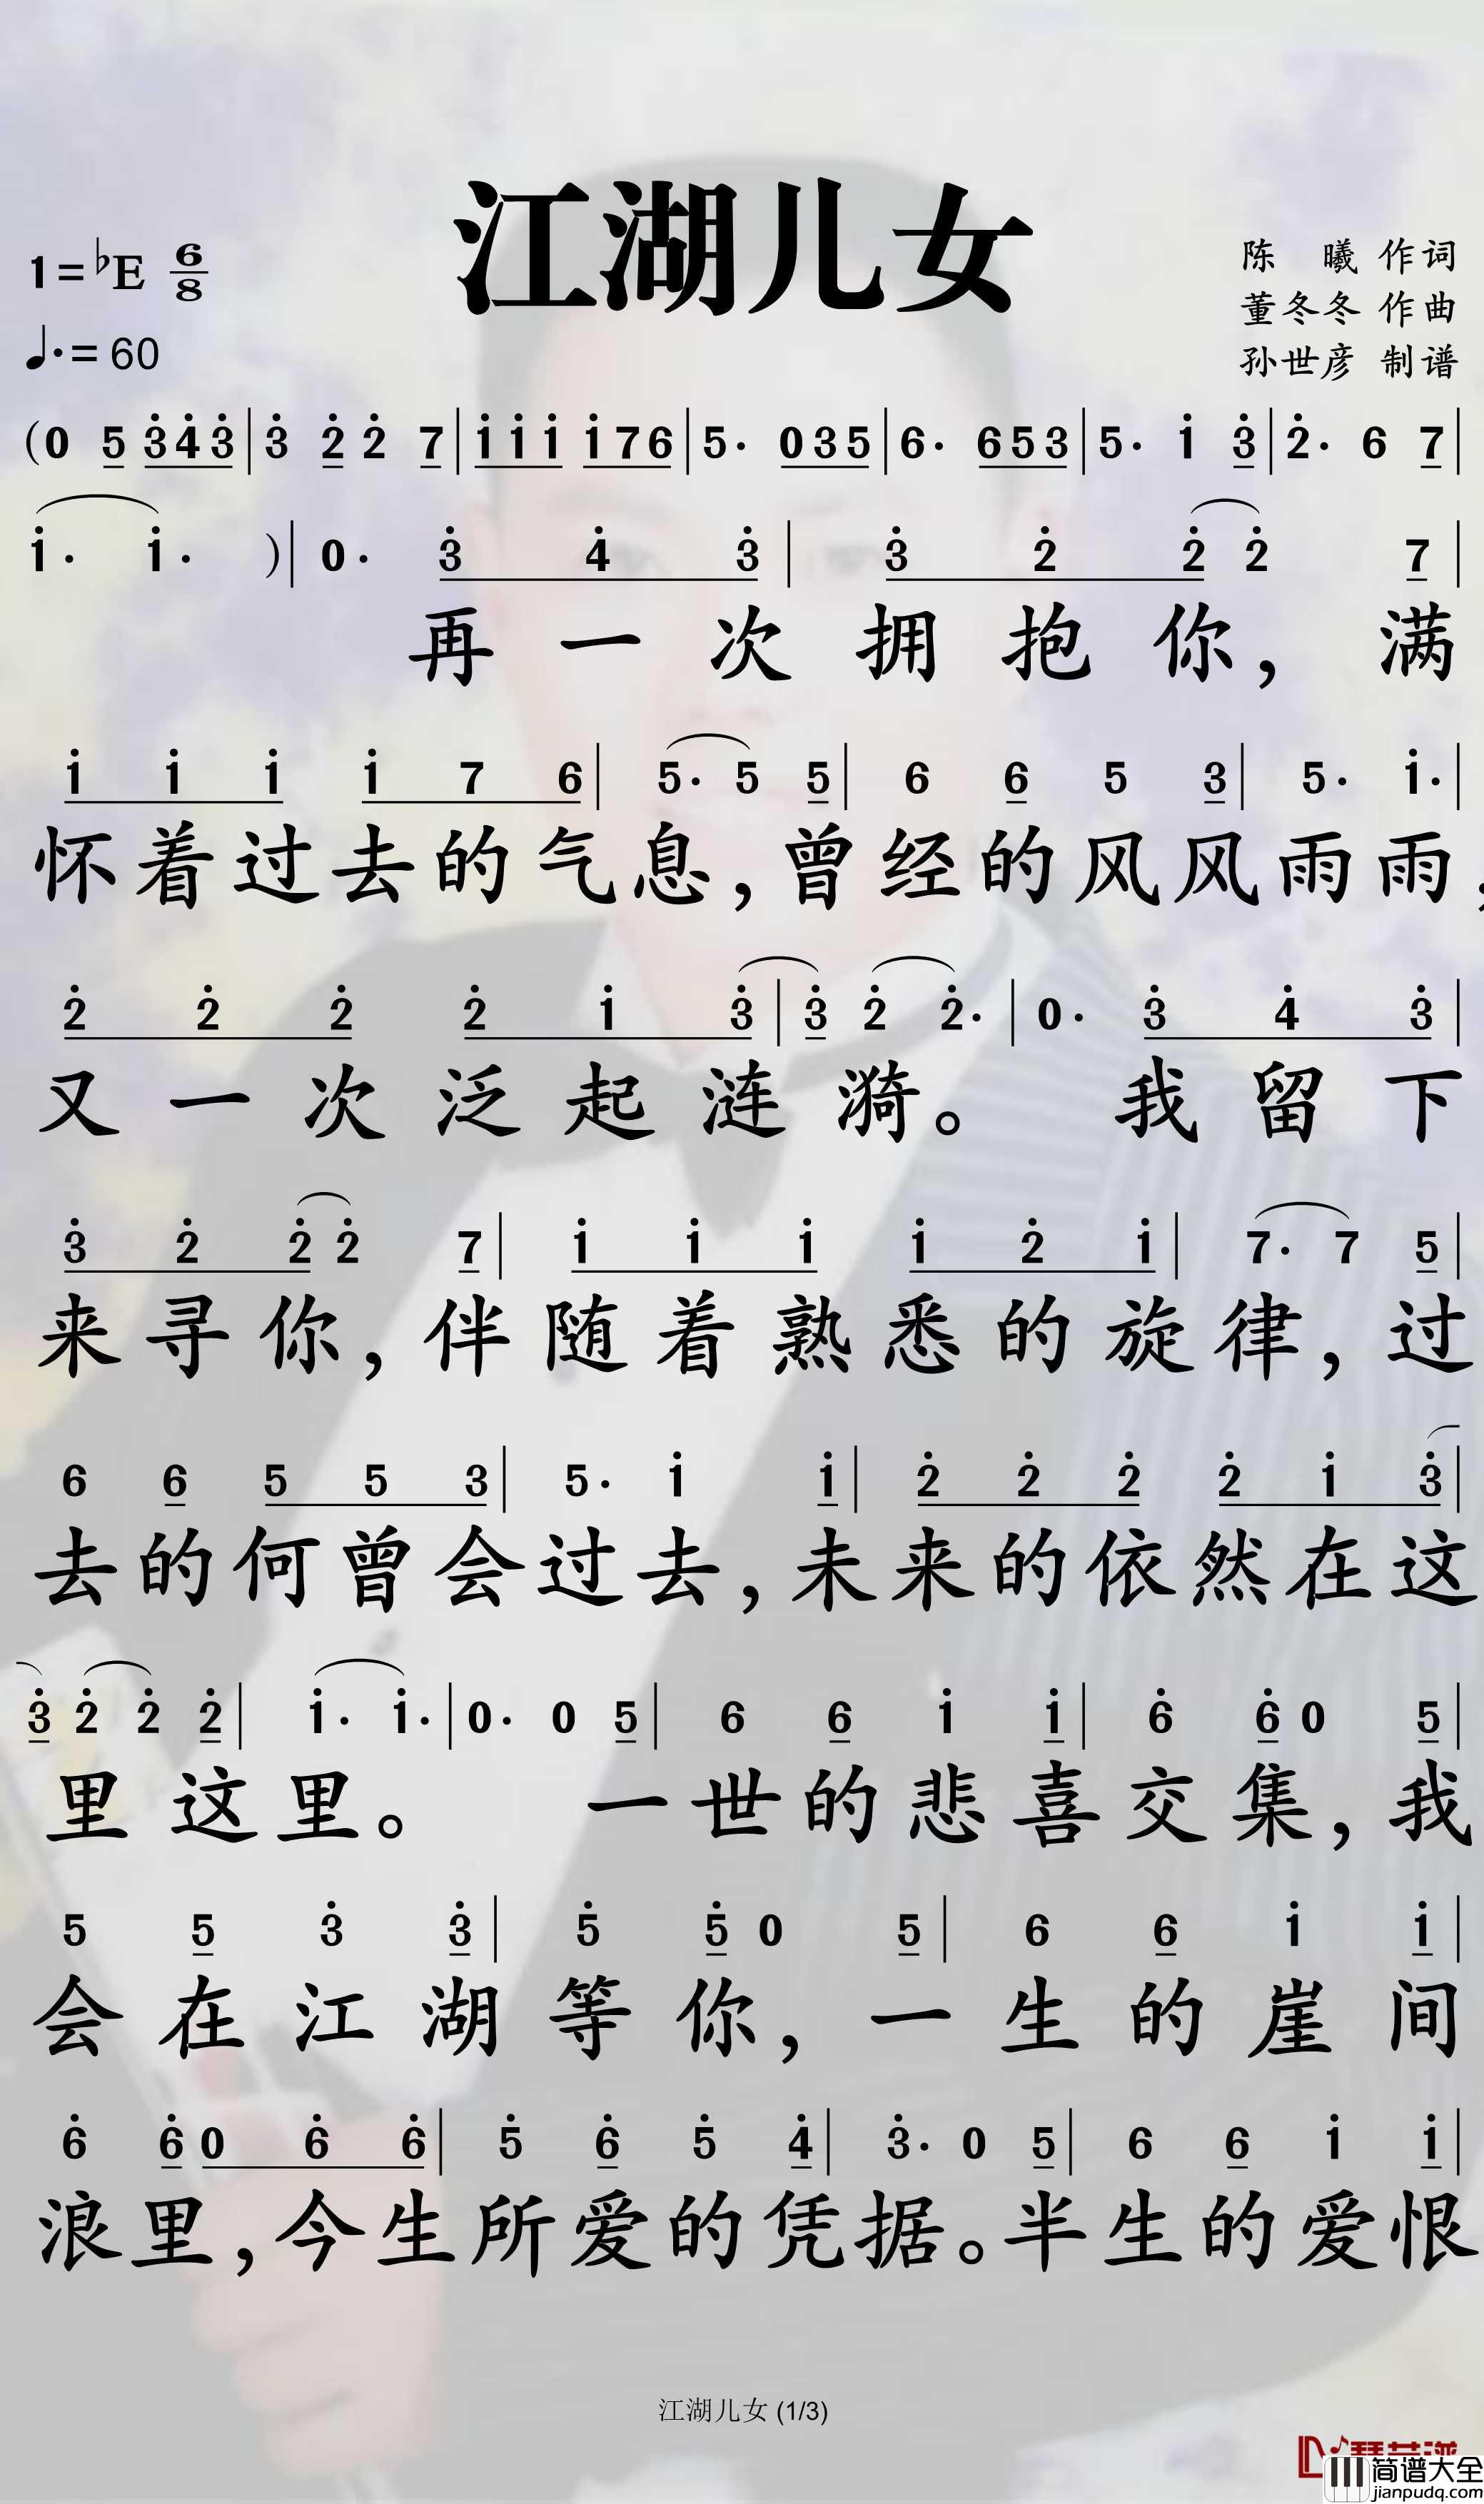 江湖儿女
1=♭E 6/8
♩.=60
陈 曦 作词
董冬冬 作曲
孙世彦 制谱
(0 5 3̇4̇3̇ | 3̇ 2̇ 2̇ 7 | 1̇ 1̇ 1̇ 1̇ 7 6 | 5· 0 3 5 | 6· 6 5 3 | 5· 1̇ 3̇ | 2̇· 6 7 |
1̇· 1̇· ) | 0· 3̇ 4̇ 3̇ | 3̇ 2̇ 2̇ 2̇ 7 |
再一次拥抱你，满
1̇ 1̇ 1̇ 1̇ 7 6 | 5· 5 5 | 6 6 5 3 | 5· 1̇· |
怀着过去的气息，曾经的风风雨雨，
2̇ 2̇ 2̇ 2̇ 1̇ 3̇ | 3̇ 2̇ 2̇· | 0· 3̇ 4̇ 3̇ |
又一次泛起涟漪。我留下
3̇ 2̇ 2̇ 2̇ 7 | 1̇ 1̇ 1̇ 1̇ 2̇ 1̇ | 7· 7 5 |
来寻你，伴随着熟悉的旋律，过
6 6 5 5 3 | 5· 1̇ 1̇ | 2̇ 2̇ 2̇ 2̇ 1̇ 3̇ |
去的何曾会过去，未来的依然在这
3̇ 2̇ 2̇ 2̇ | 1̇· 1̇· | 0· 0 5 | 6 6 1̇ 1̇ | 6̇ 6̇ 0 5 |
里这里。一世的悲喜交集，我
5 5 3̇ 3̇ | 5̇ 5̇ 0 5 | 6 6 1̇ 1̇ |
会在江湖等你，一生的崖间
6̇ 6̇ 0 6̇ 6̇ | 5̇ 6̇ 5̇ 4̇ | 3̇· 0 5 | 6 6 1̇ 1̇ |
浪里，今生所爱的凭据。半生的爱恨
江湖儿女 (1/3)
简谱大全
jianpudq.com